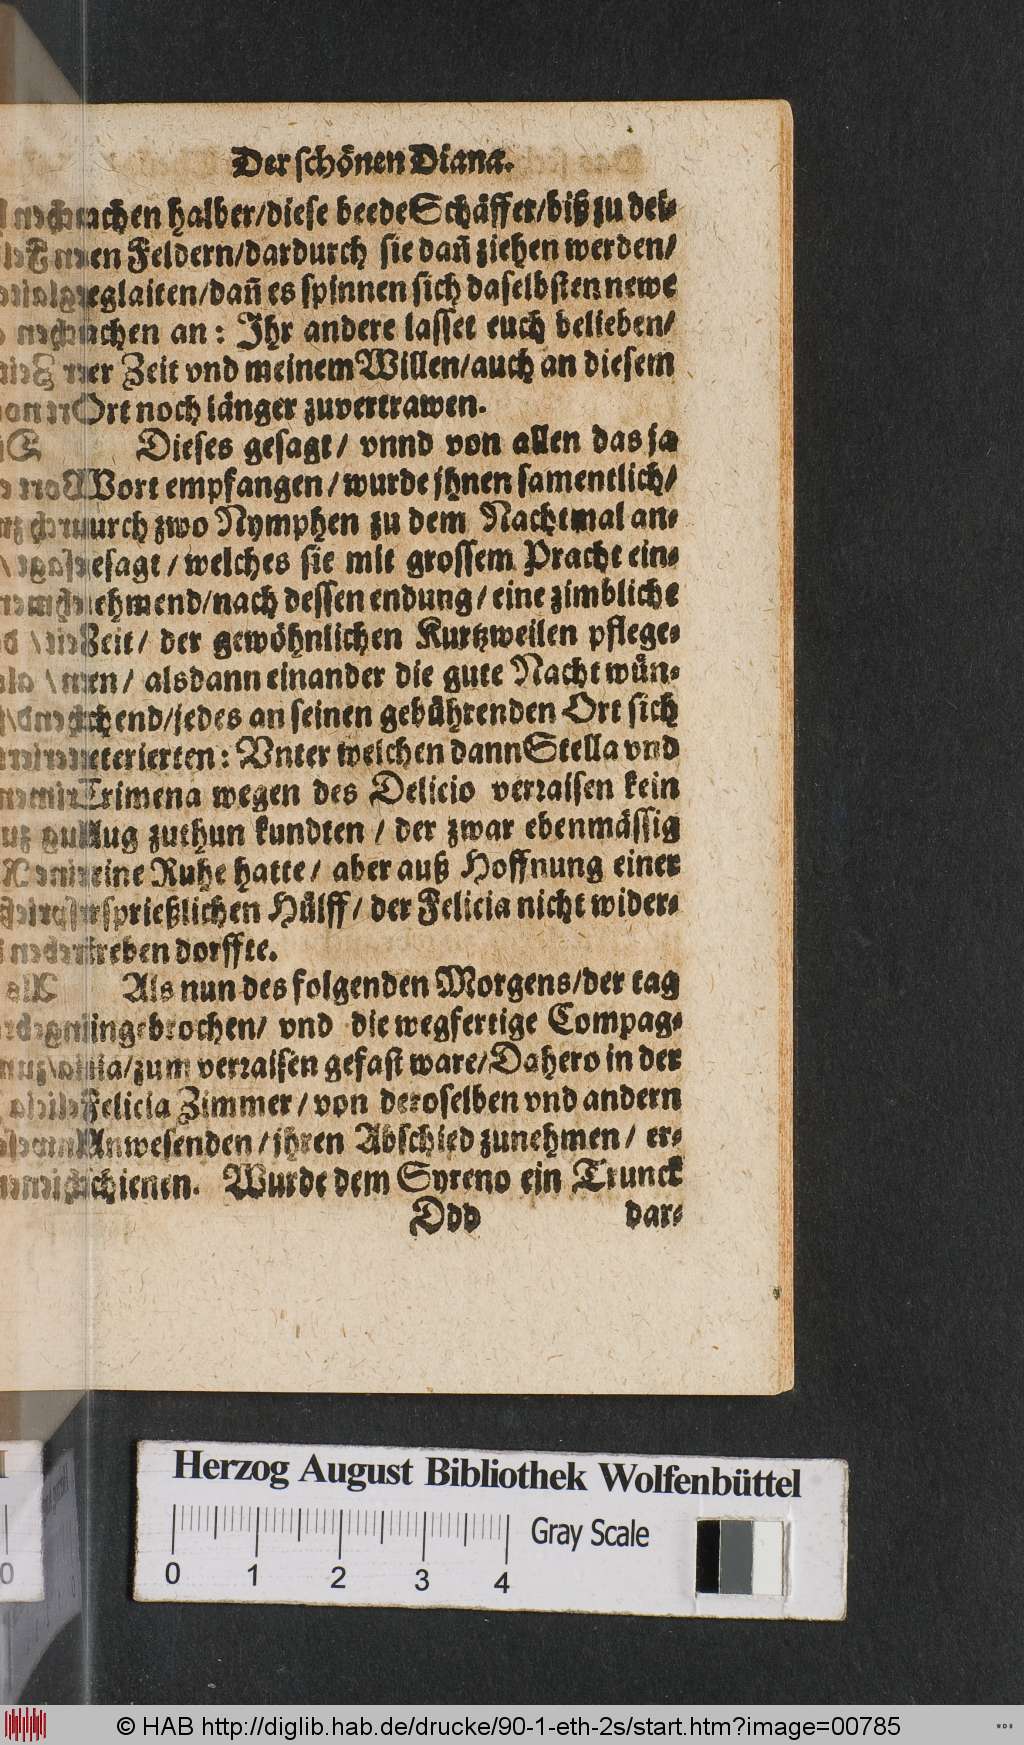 Der schönen Diana.
sachen halber/diese beede Schäffer/biß zu dei⸗
nen Feldern/dardurch sie dañ ziehen werden/
beglaiten/dañ es spinnen sich daselbsten newe
sachen an: Ihr andere lasset euch belieben/
der Zeit vnd meinem Willen/auch an diesem
Ort noch länger zuvertrawen.
Dieses gesagt/ vnnd von allen das ja
Wort empfangen/wurde jhnen samentlich/
durch zwo Nymphen zu dem Nachtmal an⸗
gesagt/welches sie mit grossem Pracht ein⸗
nehmend/nach dessen endung/eine zimbliche
Zeit/ der gewöhnlichen Kurtzweilen pflege⸗
ten/ alsdann einander die gute Nacht wün⸗
schend/jedes an seinen gebührenden Ort sich
reterierten: Vnter welchen dann Stella vnd
Crimena wegen des Delicio verraisen kein
Aug zuthun kundten/ der zwar ebenmässig
keine Ruhe hatte/ aber auß Hoffnung einer
ersprießlichen Hülff/ der Felicia nicht wider⸗
streben dorffte.
Als nun des folgenden Morgens/der tag
eingebrochen/ vnd die wegfertige Compag⸗
nia/zum verraisen gefast ware/Dahero in der
Felicia Zimmer/von deroselben vnd andern
Anwesenden/jhren Abschied zunehmen/ er⸗
schienen. Wurde dem Syreno ein Trunck
Ddd dar⸗
Herzog August Bibliothek Wolfenbüttel
Gray Scale
0 1 2 3 4
0
© HAB http://diglib.hab.de/drucke/90-1-eth-2s/start.htm?image=00785